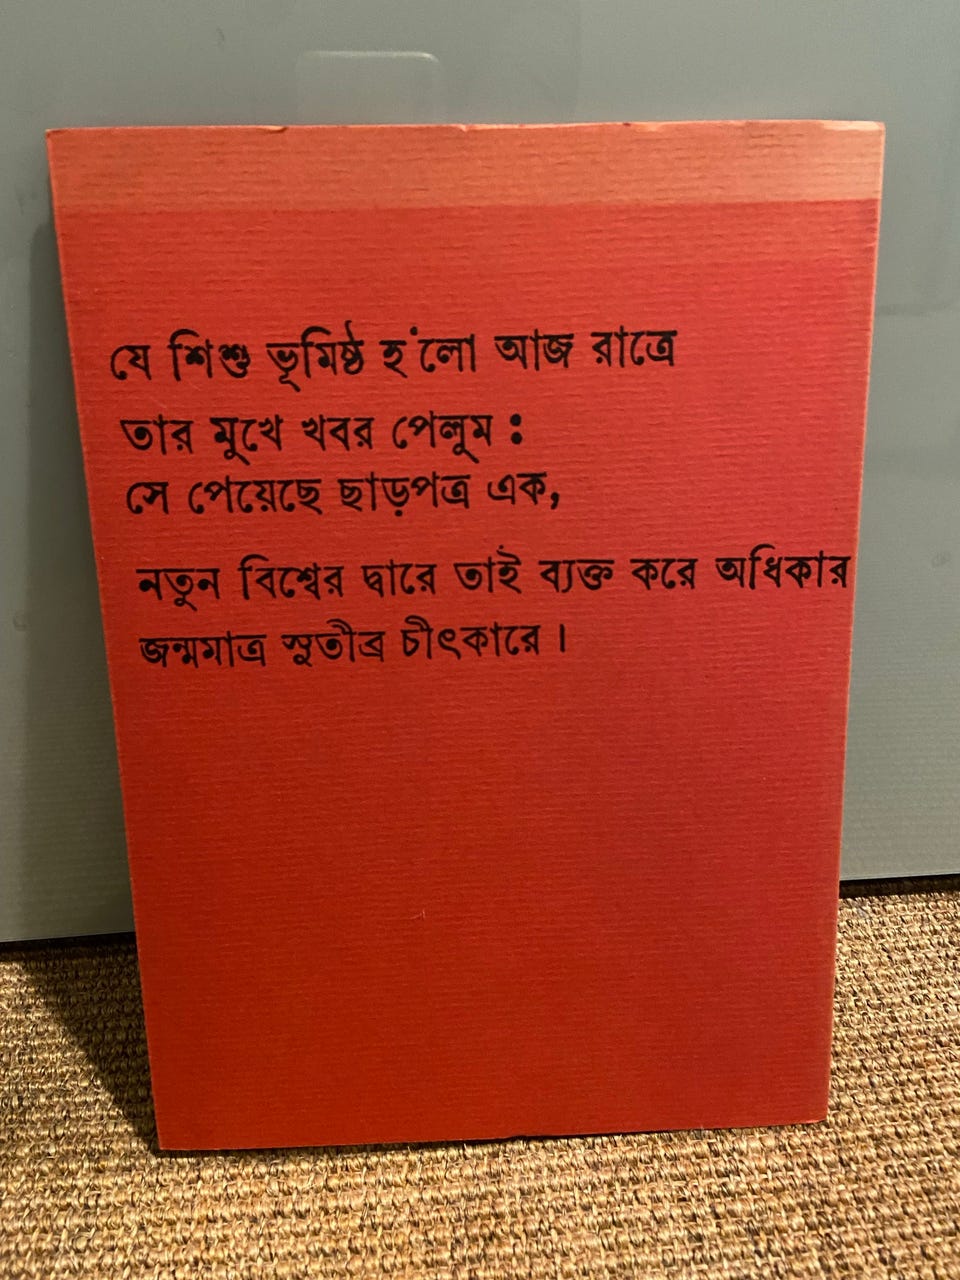 যে শিশু ভূমিষ্ঠ হ'লো আজ রাত্রে
তার মুখে খবর পেলুম :
সে পেয়েছে ছাড়পত্র এক,
নতুন বিশ্বের দ্বারে তাই ব্যক্ত করে অধিকার
জন্মমাত্র সুতীব্র চীৎকারে ।